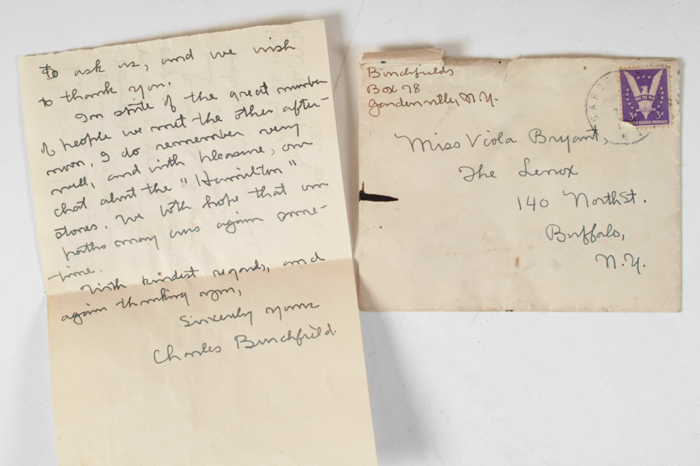 to ask us, and we wish
to thank you.
In spite of the great number
of people we met the other after-
noon, I do remember very
well, and with pleasure, our
chat about the "Hamilton"
stores. We both hope that our
paths may cross again some-
time.
With kindest regards, and
again thanking you,
Sincerely yours
Charles Burchfield.
Burchfields
Box 78
Gardenville, N.Y.
Miss Viola Bryant,
The Lenox
140 North St.
Buffalo,
N.Y.
3¢ 3¢